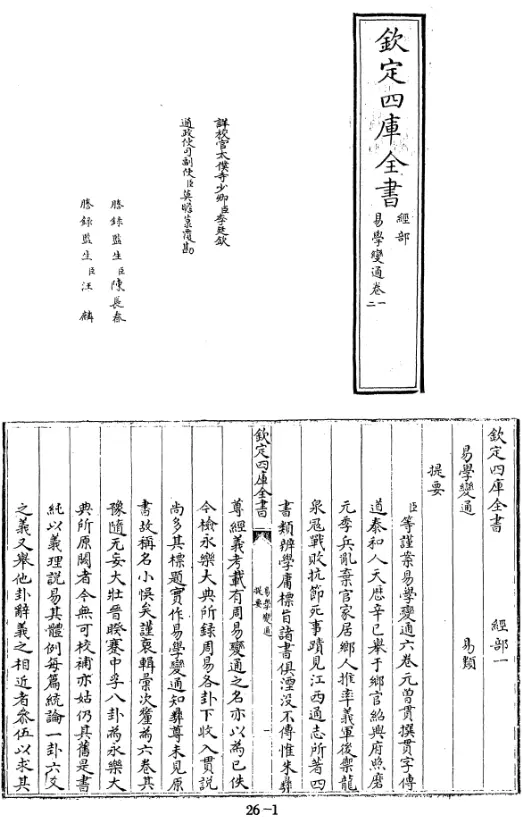 欽定四庫全書
經部
易學變通卷一
二
詳校官太僕寺少卿臣李廷欽
通政使司副使臣莫瞻菉覆勘
謄錄監生臣陳長春
謄錄監生臣汪麟
欽定四庫全書 經部一
易學變通 易類
提要
臣等謹案易學變通六卷元曾貫撰貫字傳
道泰和人天厯辛巳舉于鄉官紹興府照磨
元季兵亂棄官家居鄉人推率義軍後禦龍
泉冦戰敗抗節死事蹟見江西通志所著四
書類辨學庸標旨諸書俱湮没不傳惟朱彝
欽定四庫全書 易學變通 提要 一
尊經義考載有周易變通之名亦以為已佚
今檢永樂大典所録周易各卦下收入貫說
尚多其標題實作易學變通知彝尊未見原
書故稱名小悞矣謹裒輯彙次釐為六卷其
豫隨无妄大壯晉睽蹇中孚八卦為永樂大
典所原闕者今無可校補亦姑仍其舊是書
純以義理說易其體例每篇統論一卦六爻
之義又舉他卦辭義之相近者參伍以求其
26-1